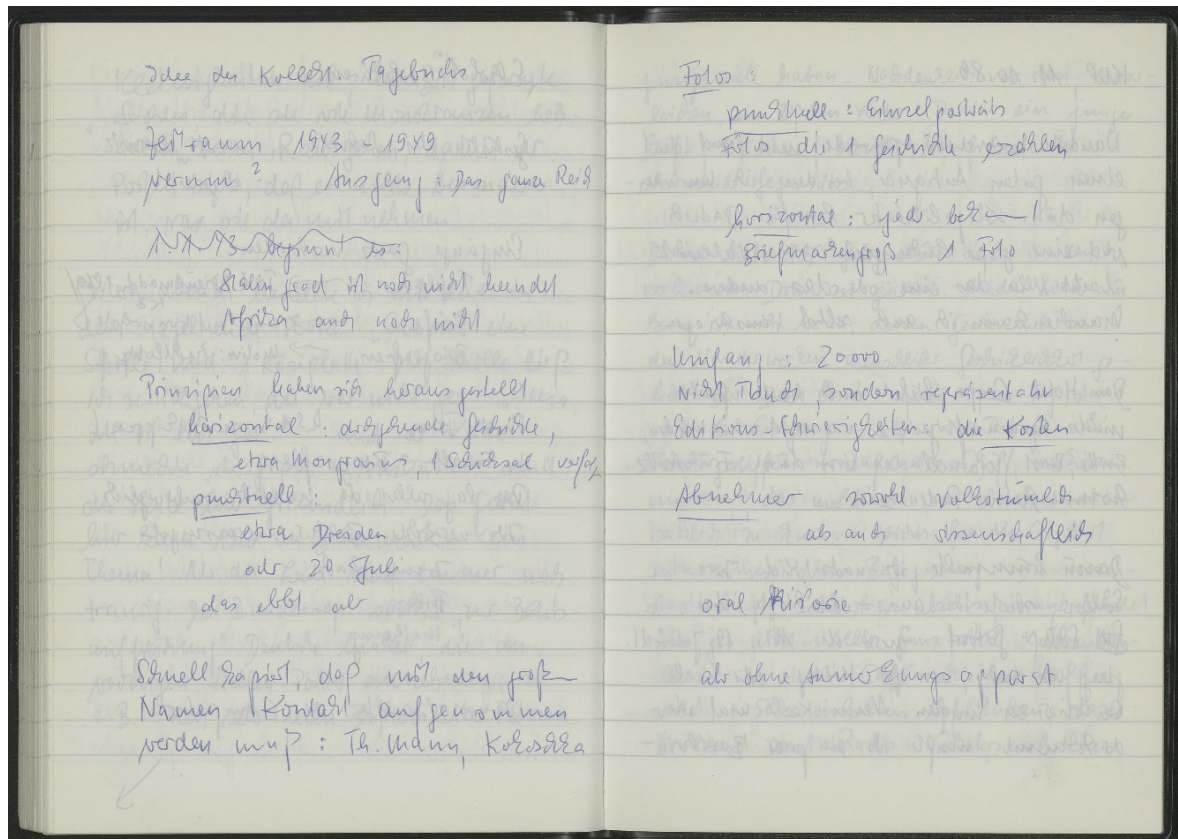 Idee des Kollekt. Tagebuchs
Zeitraum 1943 - 1949
warum? Ausgang: Das ganze Reich
1. 1. 43 beginnt es:
Stalingrad ist noch nicht beendet
Afrika auch noch nicht
Prinzipien haben sich herausgestellt
horizontal: durchgehende Geschichte,
etwa Monprovins, 1 Schicksal verfolg.
punktuell:
etwa Dresden
oder 20 Juli
das ebbt ab
Schnell kapiert, daß mit den großen
Namen Kontakt aufgenommen
werden muß: Th. Mann, Kokoschka
Fotos:
punktuell: Einzelporträts
Fotos die 1 Geschichte erzählen
horizontal: jeder bekommt
briefmarkengroß 1 Foto
Umfang: 20000
Nicht, sondern repräsentativ
Editions-Schwierigkeiten die Kosten
Abnehmer sowohl volkstümlich
als auch wissenschaftlich
oral Historie
aber ohne Anmerkungsapparat